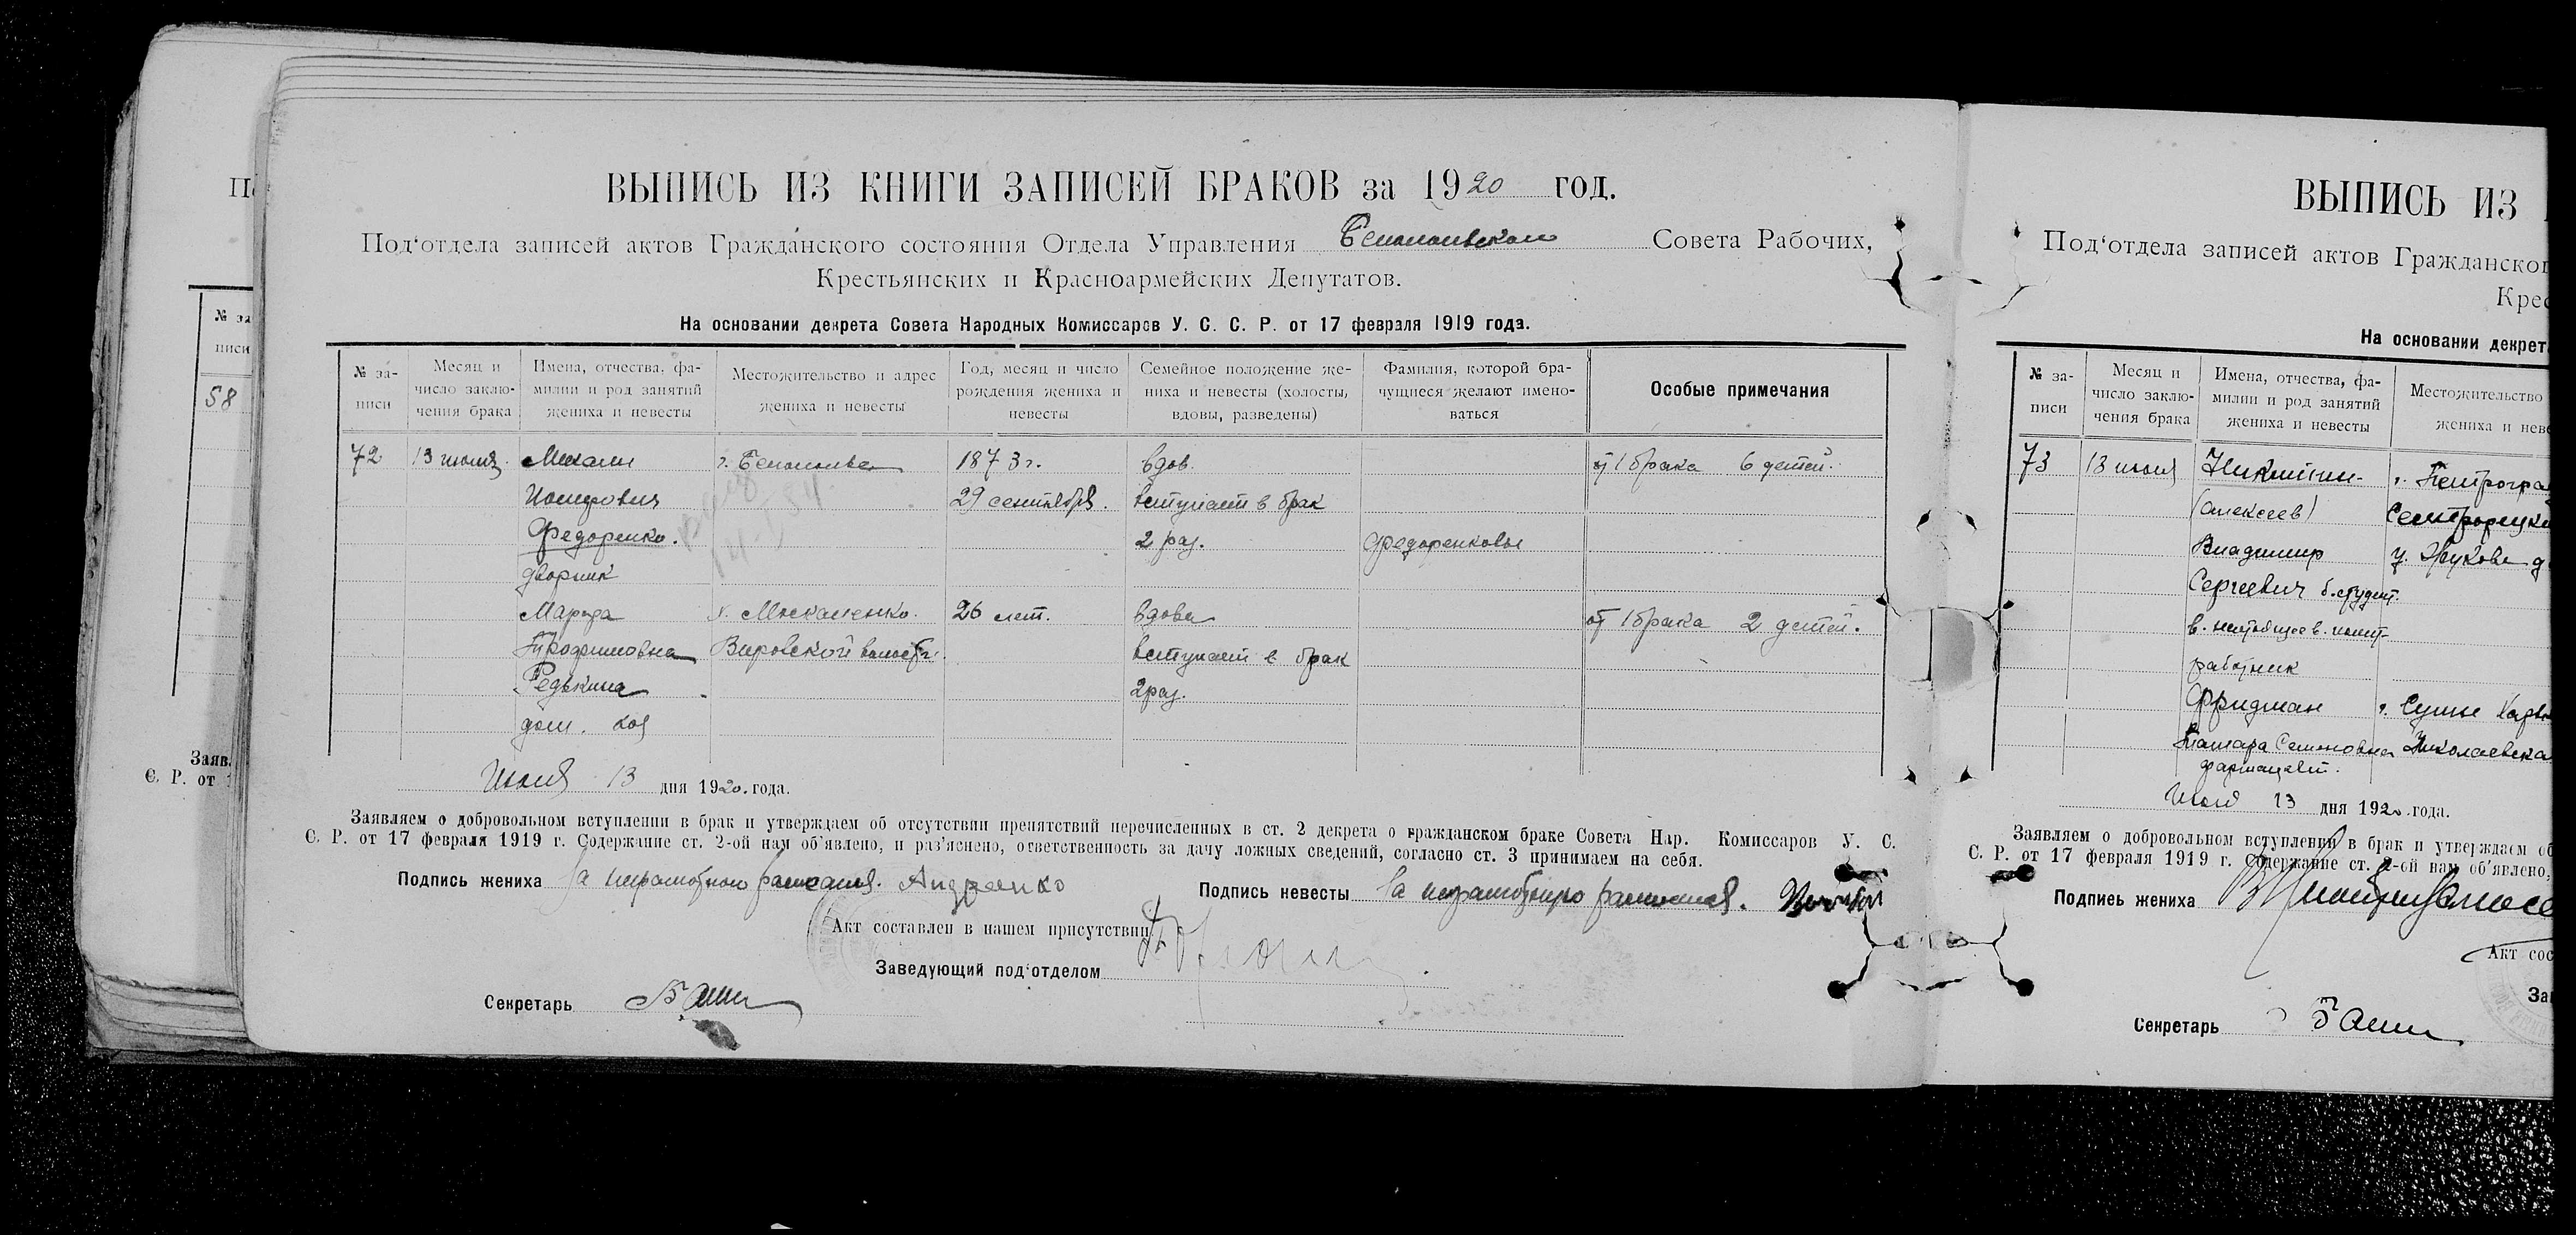 ВЫПИСЬ ИЗ КНИГИ ЗАПИСЕЙ БРАКОВ за 1920 год.
Под'отдела записей актов Гражданского состояния Отдела Управления Совета Рабочих,
Крестьянских и Красноармейских Депутатов.
На основании декрета Совета Народных Комиссаров У. С. С. Р. от 17 февраля 1919 года.
№ за-
писи
Месяц и
число заклю-
чения брака
Имена, отчества, фа-
милии и род занятий
жениха и невесты
Местожительство и адрес
жениха и невесты
Год, месяц и число
рождения жениха и
невесты
Семейное положение же-
ниха и невесты (холосты,
вдовы, разведены)
Фамилия, которой бра-
чущиеся желают имено-
ваться
Особые примечания
72
13 июля
Михаил
Иосифович
Федоренко.
дворник
г.
1873 г.
29 сентября.
вдов.
вступает в брак
2 раз.
Федоренковы
от 1 брака 6 детей.
Марфа
Трофимовна
Редькина
дом. хоз
х. Москаленко.
Вировской волости.
26 лет.
вдова
вступает в брак
2 раз.
от 1 брака 2 детей.
Июля 13 дня 1920. года.
Заявляем о добровольном вступлении в брак и утверждаем об отсутствии препятствий перечисленных в ст. 2 декрета о гражданском браке Совета Нар. Комиссаров У. С.
С. Р. от 17 февраля 1919 г. Содержание ст. 2-ой нам об'явлено, и раз'яснено, ответственность за дачу ложных сведений, согласно ст. 3 принимаем на себя.
Подпись жениха За неграмотного расписался. Андреенко
Подпись невесты За неграмотную расписался.
Акт составлен в нашем присутствии
Заведующий под'отделом
Секретарь
ВЫПИСЬ ИЗ
Под'отдела записей актов Гражданског
Крес
На основании декрет
№ за-
писи
Месяц и
число заклю-
чения брака
Имена, отчества, фа-
милии и род занятий
жениха и невесты
Местожительство
жениха и неве
73
13 июля
Никитин-
(Алексеев)
Владимир
Сергеевич б. студент.
в. настоящее в. полит-
работник
г. Петроград
Сестрорецк
у. Жукова д
Фридман
Тамара Семеновна
фармацевт.
г. Сумы Харьк
Николаевска
Июля 13 дня 1920 года.
Заявляем о добровольном вступлении в брак и утверждаем об
С. Р. от 17 февраля 1919 г. Содержание ст. 2-ой нам об'явлено,
Подпись жениха
Акт сос
За
Секретарь
По
№ за
писи
58
Заяв.
С. Р. от 1